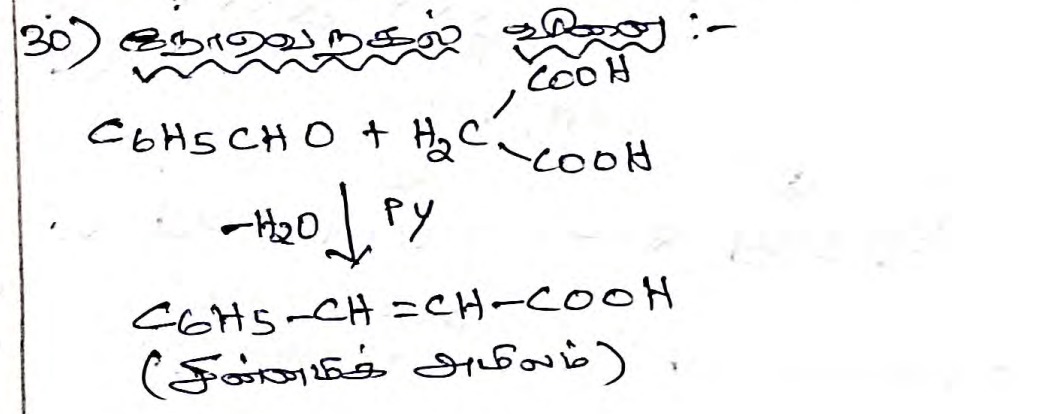 30) நோவெநகல் வினை :-
COOH
C6H5CHO + H2C
COOH
-H2O ↓ PY
C6H5-CH=CH-COOH
(சின்னமிக் அமிலம்)